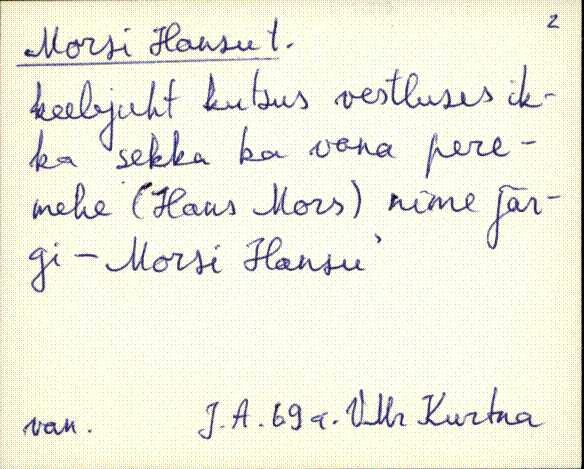 2
Morsi Hansu t.
keelejuht kutsus vestluses ik-
ka sekka ka vana pere-
mehe (Hans Mors) nime jär-
gi – Morsi Hansu
van. J.A. 69 a. VMr Kurtna